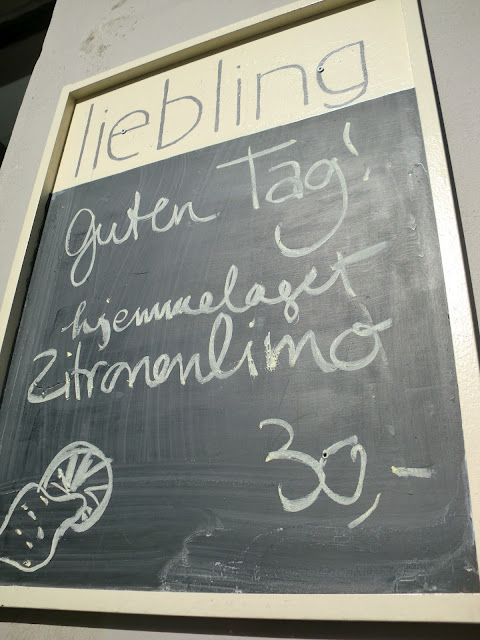 liebling
guten Tag!
hjemmelaget
Zitronenlimo
30,-